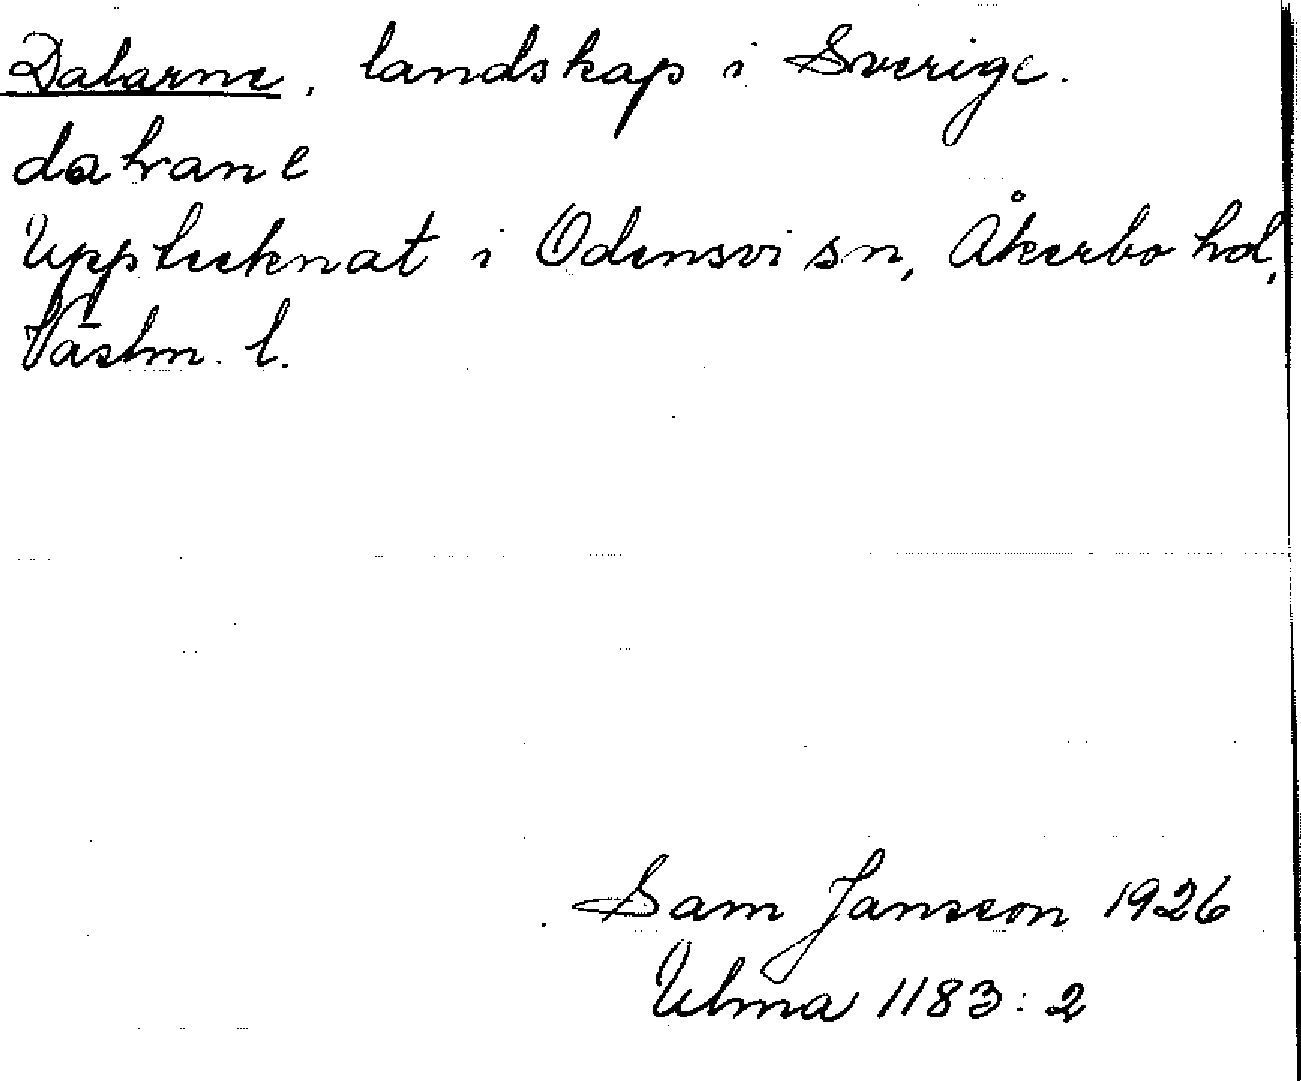 Dalarne, landskap i Sverige.
dahrane
Upptecknat i Odensvi sn, Åkerbo hd,
Västm. l.
Sam Jansson 1926
Ulma 1183:2